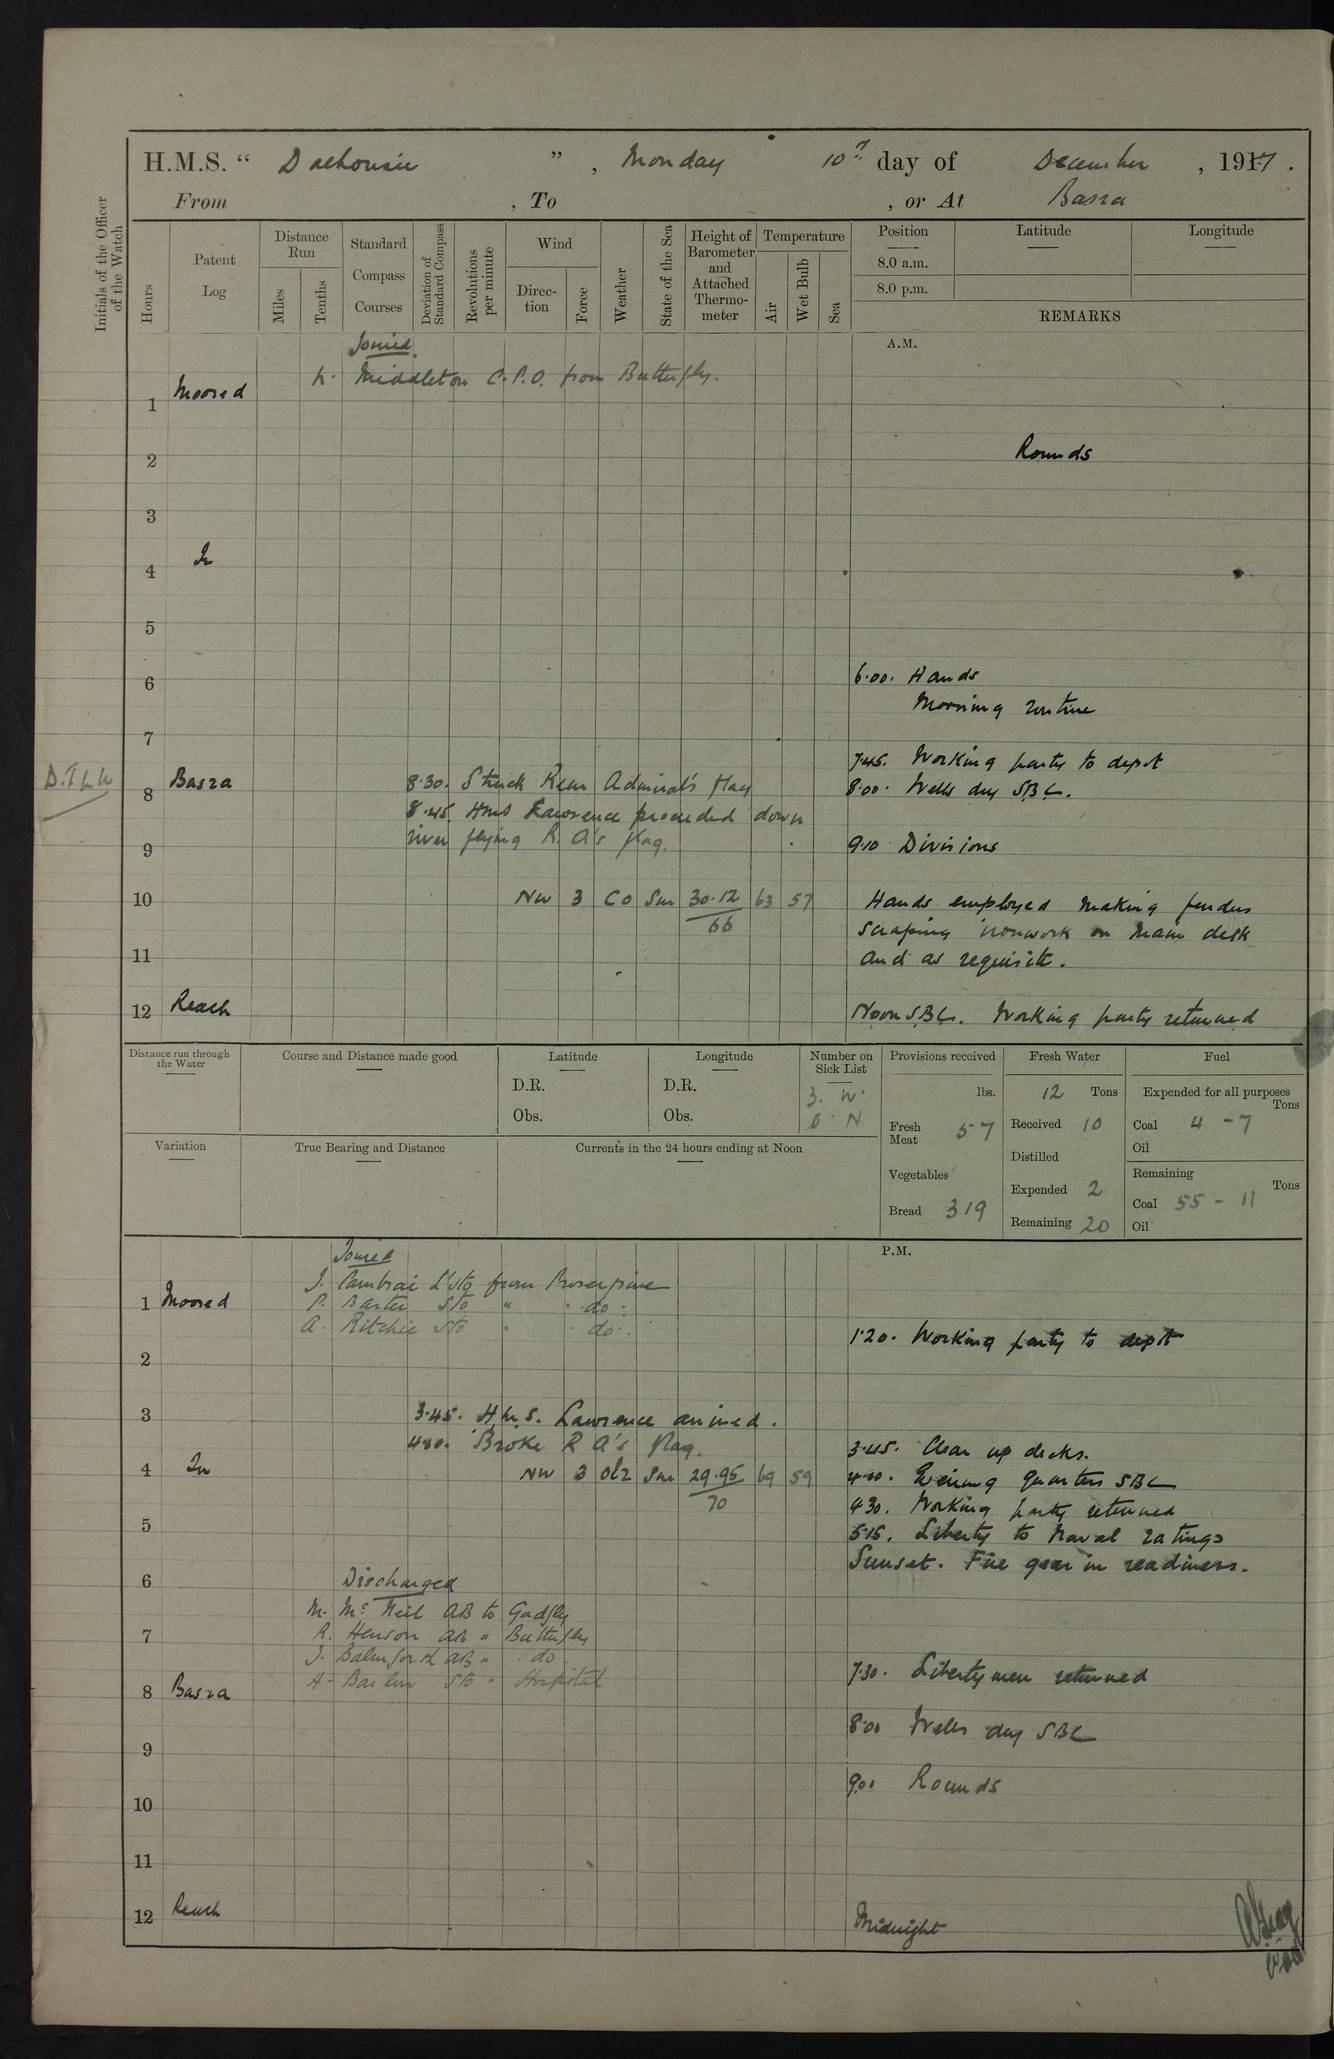 H.M.S. " Dalhousie ", Monday 10th day of December, 1917.
From , To , or At Basra
Initials of the Officer of the Watch
Hours
Patent Log
Distance Run
Miles
Tenths
Standard Compass Courses
Deviation of Standard Compass
Revolutions per minute
Wind
Direction
Force
Weather
State of the Sea
Height of Barometer and Attached Thermometer
Temperature
Air
Wet Bulb
Sea
Position
8.0 a.m.
8.0 p.m.
Latitude
Longitude
REMARKS
A.M.
Joined
Middleton C.P.O. from Butterfly.
1 Moored
2 Rounds
3
4 In
5
6 6.00. Hands
Morning routine
7
7.45. Working party to depot
8 Basra 8.30. Struck Rear Admiral's flag 8.00. Wells dry SBC.
8.45. HMS Lawrence proceeded down
river flying R.A's flag.
9 9.10 Divisions
10 NW 3 Co Sm 30.12 63 57
66
Hands employed making fendrs
scraping ironwork on main desk
11 and as requisite.
12 Reach Noon SBC. Working party returned
Distance run through the Water
Course and Distance made good
Latitude
D.R.
Obs.
Longitude
D.R.
Obs.
Number on Sick List
3. W.
0 N
Provisions received
lbs.
Fresh Meat 57
Vegetables
Bread 319
Fresh Water
12 Tons
Received 10
Distilled
Expended 2
Remaining 20
Fuel
Expended for all purposes
Tons
Coal 4 - 7
Oil
Remaining
Tons
Coal 55 - 11
Oil
Variation
True Bearing and Distance
Currents in the 24 hours ending at Noon
P.M.
Joined
J. Cambrai L'Sto from Proserpine
P. Barter Sto " do.
1 Moored
A. Ritchie Sto " do.
1.20. Working party to depot
2
3 3.45. H.M.S. Lawrence arrived.
4.00. Broke R A's flag.
3.45. Clear up decks.
4 In NW 3 Sm 29.95 69 59
70
4.00. Evening Quarters SBC
4.30. Working party returned
5 5.15. Liberty to Naval ratings
Sunset. Fire gear in readiness.
6 Discharged
M. McNeil AB to Gadfly
7 R. Henson AB " Butterfly
J. Balmforth AB " do
7.30. Liberty men returned
Sto " Hospital
8 Basra
8.00 Wells dry SBC
9
9.0. Rounds
10
11
12 Reach Midnight